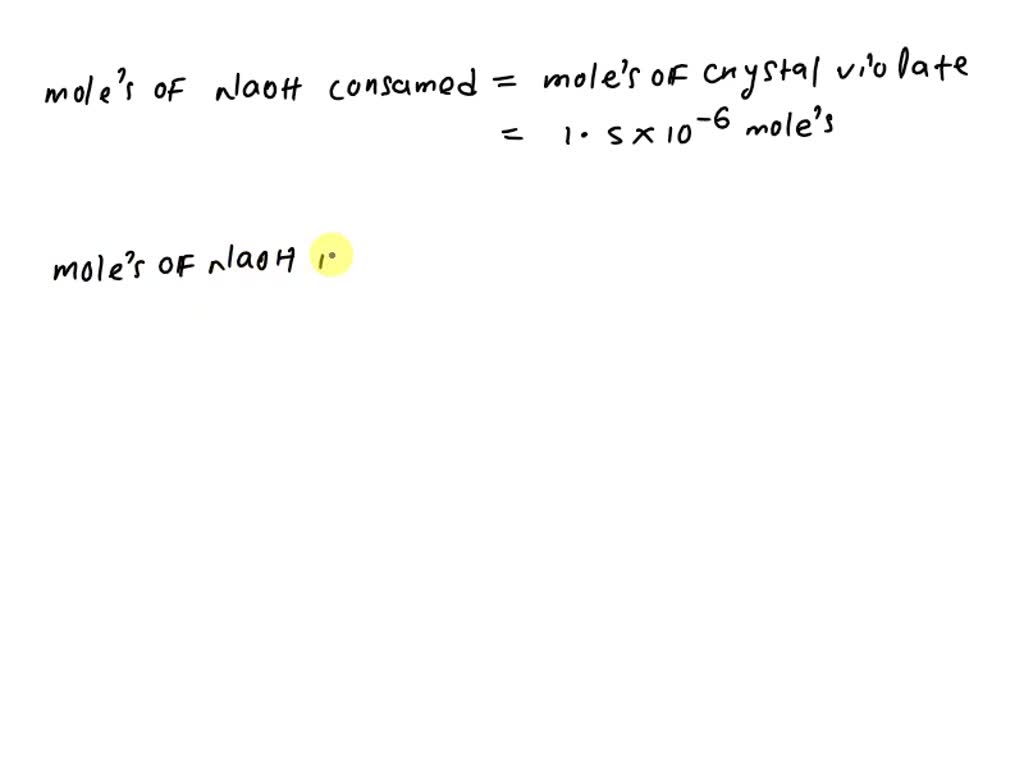 mole's of NaOH consamed = mole's of cnystal violate
= 1.5 × 10⁻⁶ mole's
mole's of NaOH